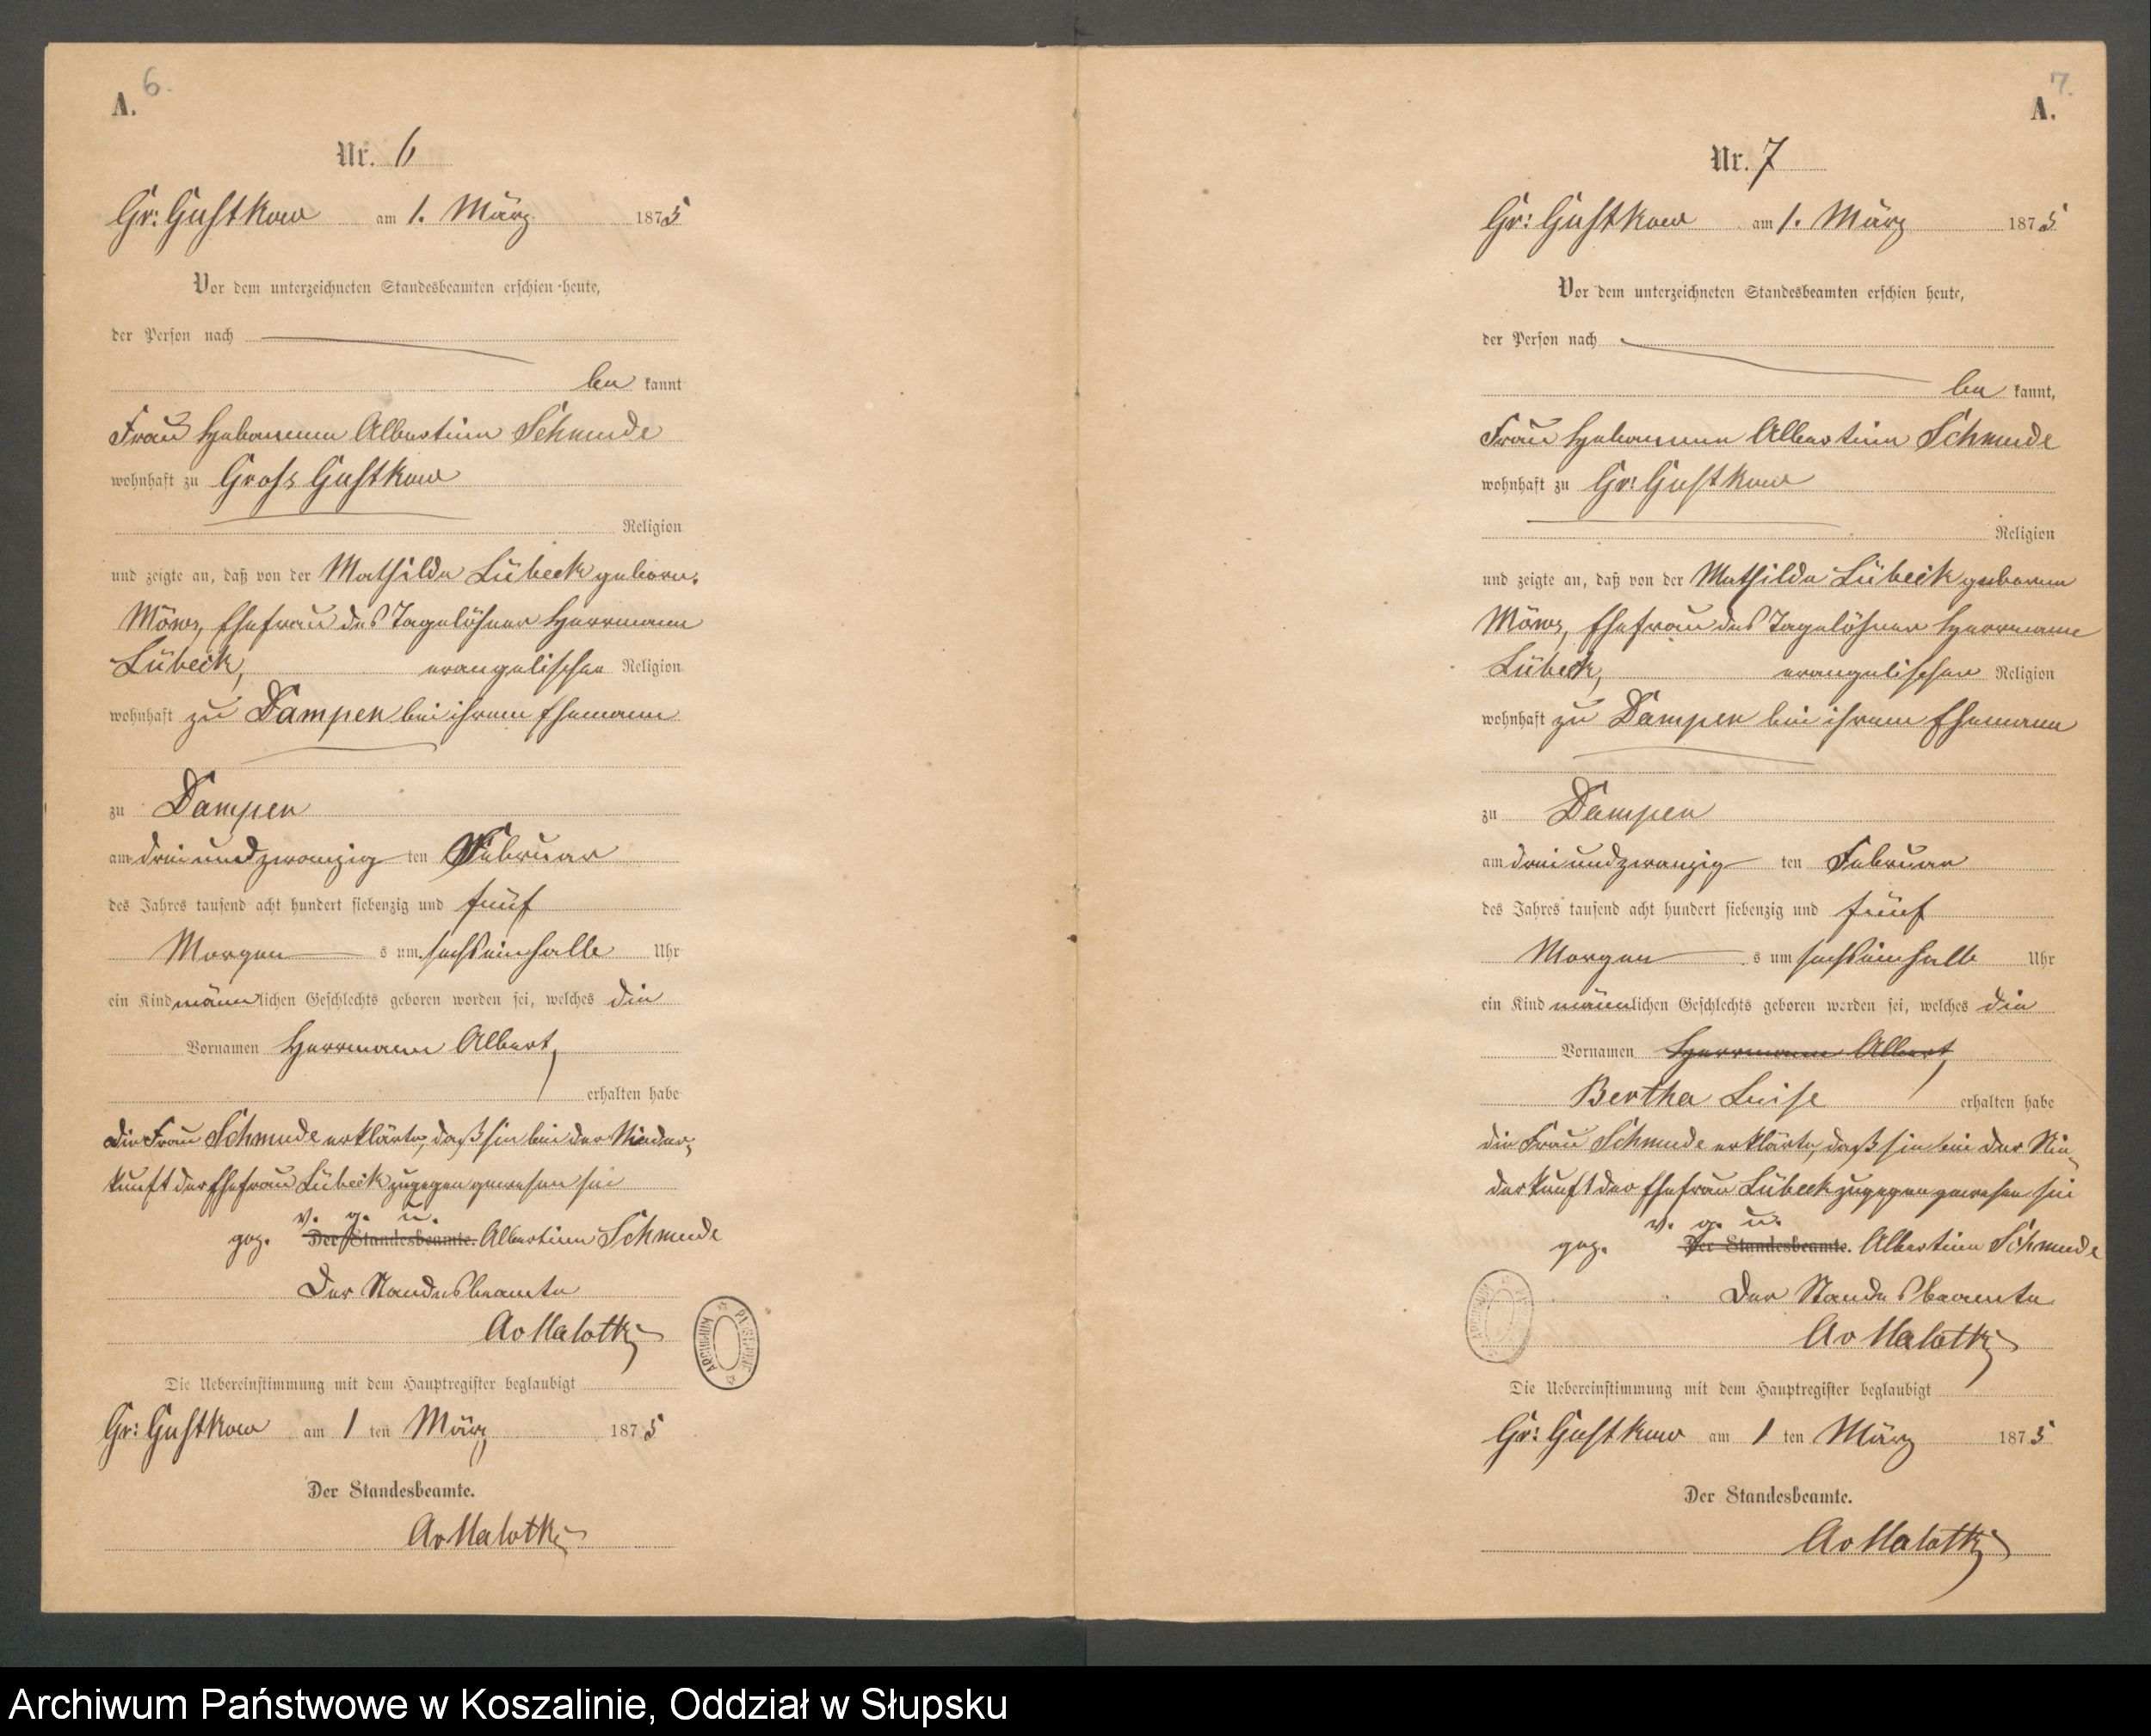 6.
A.
Nr. 6
Gr: Gustkow am 1. März 1875
Vor dem unterzeichneten Standesbeamten erschien heute,
der Person nach
be kannt
Frau Hebamme Albertine Schmude
wohnhaft zu Gross Gustkow
Religion
und zeigte an, daß von der Mathilde Lübeck geborn.
Möws, Ehefrau des Tagelöhner Herrmann
Lübeck, evangelischer Religion
wohnhaft zu Dampen bei ihrem Ehemann
zu Dampen
am dreiundzwanzig ten Februar
des Jahres tausend acht hundert siebenzig und fünf
Morgen s um sechseinhalb Uhr
ein Kind männlichen Geschlechts geboren worden sei, welches die
Vornamen Herrmann Albert,
erhalten habe
die Frau Schmude erklärte, daß sie bei der Nieder-
kunft der Ehefrau Lübeck zugegen gewesen sei
v. g. u.
gez. Der Standesbeamte. Albertine Schmude
Der Standesbeamte
AvMalottki
Die Uebereinstimmung mit dem Hauptregister beglaubigt
Gr: Gustkow am 1 ten März 1875
Der Standesbeamte.
AvMalottki
7.
A.
Nr. 7
Gr: Gustkow am 1. März 1875
Vor dem unterzeichneten Standesbeamten erschien heute,
der Person nach
be kannt,
Frau Hebamme Albertine Schmude
wohnhaft zu Gr: Gustkow
Religion
und zeigte an, daß von der Mathilde Lübeck geborene
Möws, Ehefrau des Tagelöhner Herrmann
Lübeck, evangelischer Religion
wohnhaft zu Dampen bei ihrem Ehemann
zu Dampen
am dreiundzwanzig ten Februar
des Jahres tausend acht hundert siebenzig und fünf
Morgen s um sechseinhalb Uhr
ein Kind männlichen Geschlechts geboren worden sei, welches die
Vornamen Herrmann Albert,
Bertha Luise erhalten habe
die Frau Schmude erklärte, daß sie bei der Nie-
derkunft der Ehefrau Lübeck zugegen gewesen sei
v. g. u.
gez. Der Standesbeamte. Albertine Schmude
Der Standesbeamte
AvMalottki
Die Uebereinstimmung mit dem Hauptregister beglaubigt
Gr: Gustkow am 1 ten März 1875
Der Standesbeamte.
AvMalottki
Archiwum Państwowe w Koszalinie, Oddział w Słupsku